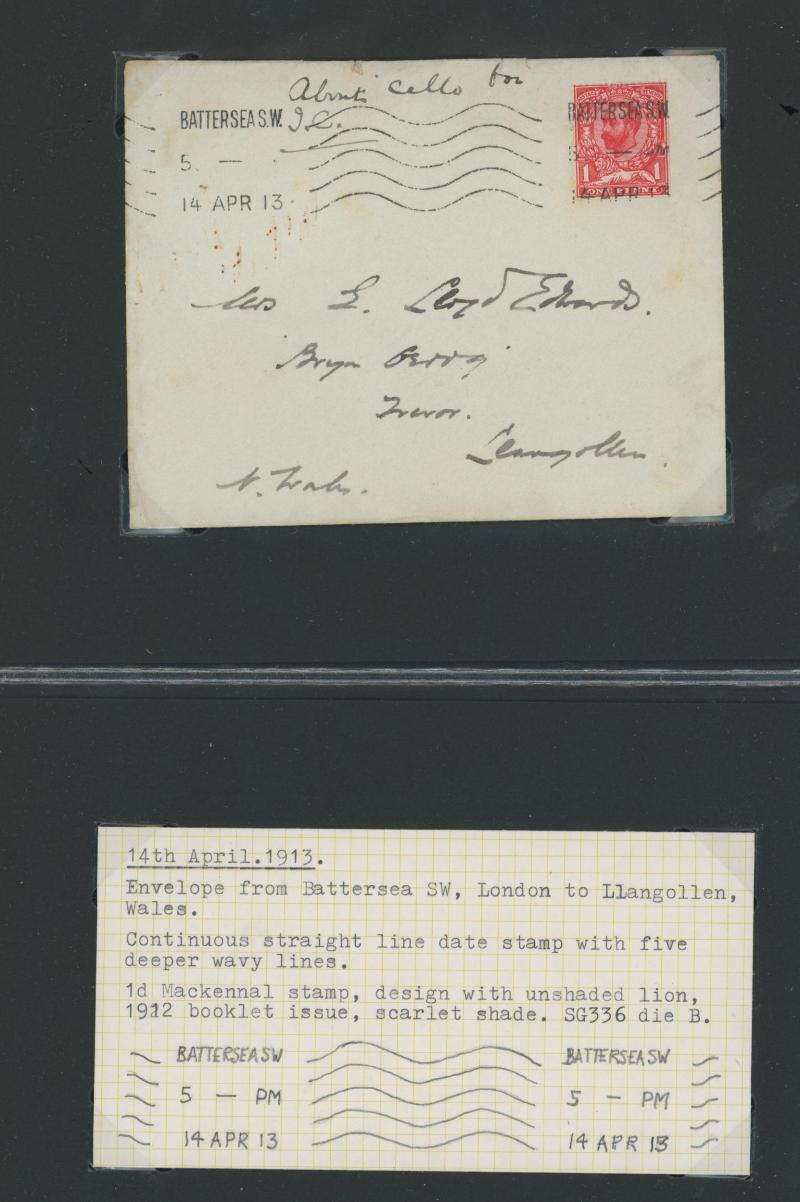 About cello for
I.C.
BATTERSEA S.W. BATTERSEA S.W.
5. — 5 — PM
14 APR 13 14 APR 13
1 1
ONE PENNY
Mrs E. Lloyd Edwards.
Bryn Oerog
Trevor.
Llangollen.
N. Wales.
14th April.1913.
Envelope from Battersea SW, London to Llangollen,
Wales.
Continuous straight line date stamp with five
deeper wavy lines.
1d Mackennal stamp, design with unshaded lion,
1912 booklet issue, scarlet shade. SG336 die B.
BATTERSEA SW BATTERSEA SW
5 — PM 5 — PM
14 APR 13 14 APR 13